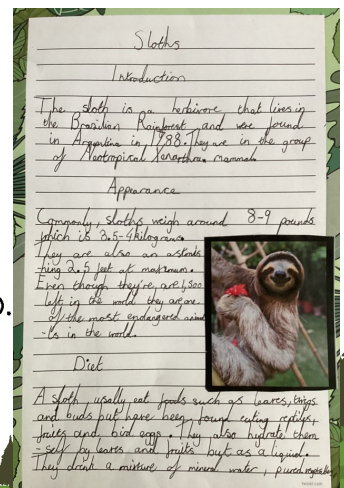 Sloths
Introduction
The sloth is a herbivore that lives in
the Brazilian Rainforest and were found
in Argentina in 1788. They are in the group
of Neotropical Xenarthra mammals
Appearance
Commonly, sloths weigh around 8-9 pounds
which is 3.5-4 kilograms.
They are also an astonis
hing 2.5 feet at maximum.
Even though they're, are 1,500
left in the world they are one
of the most endangered animal
-ls in the world.
Diet
A sloth, usally eat foods such as leaves, twigs
and buds but have been found eating reptiles,
fruits and bird eggs. They also hydrate them
-self by leaves and fruits but as a liquid.
They drink a mixture of mineral water, pureed
).